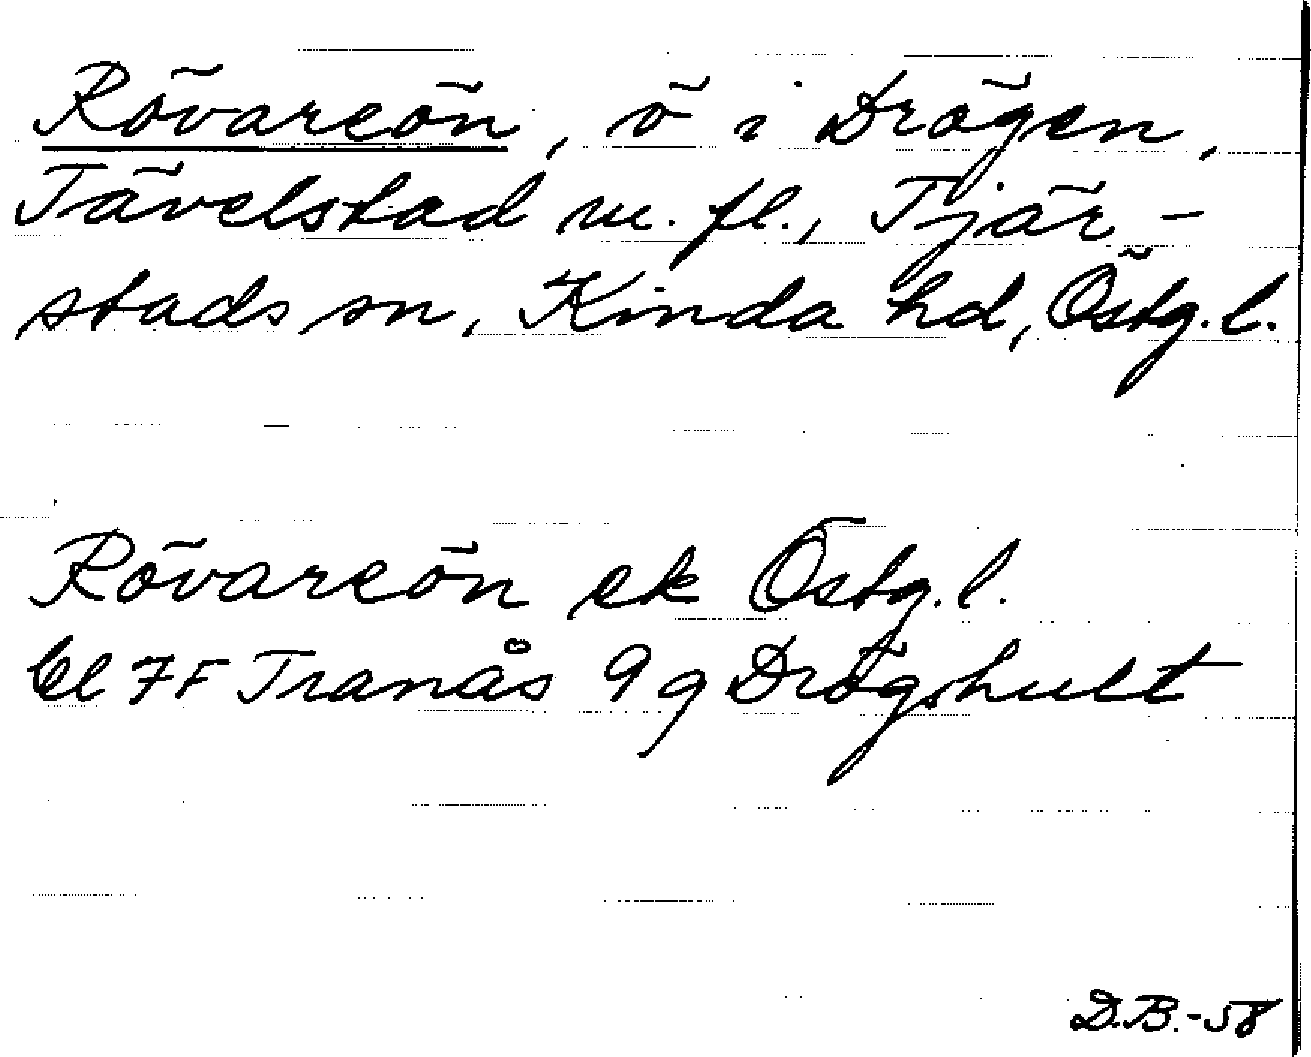 Rövareön, ö i Drögen,
Tävelstad m. fl., Tjär-
stads sn, Kinda hd, Östg. l.
Rövareön ek Östg. l.
bl 7F Tranås 9g Drögshult
D.B.-58